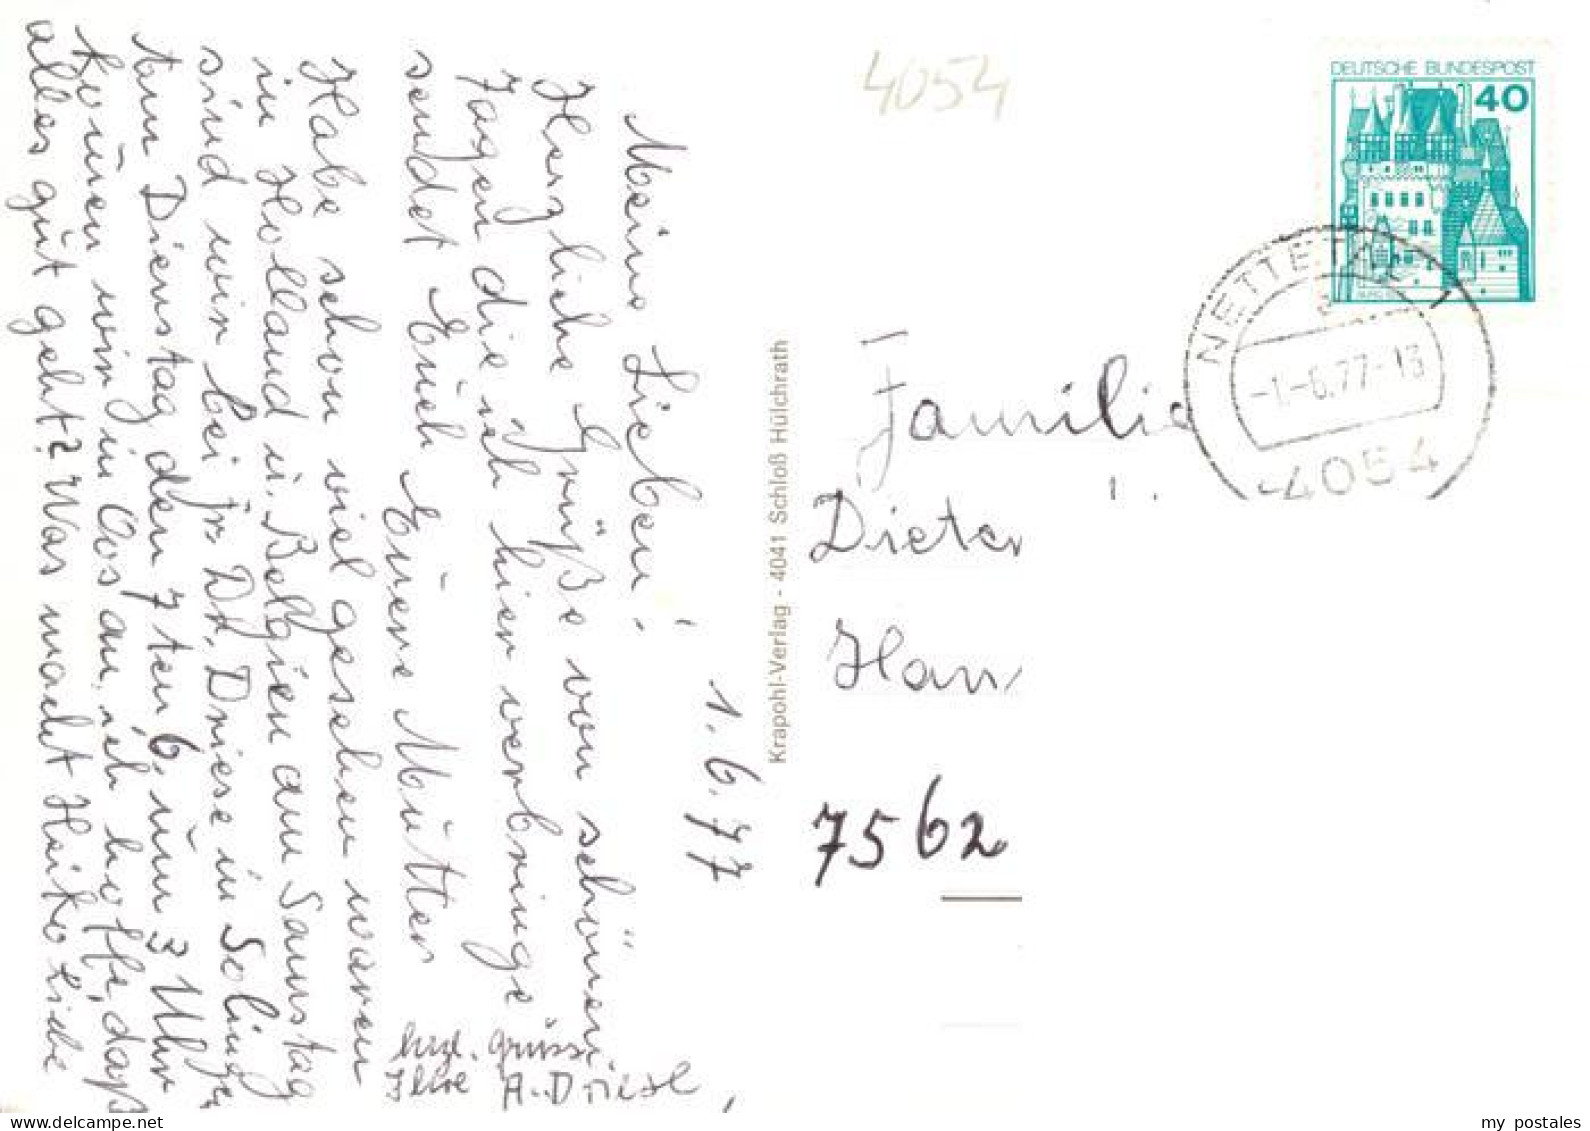 1. 6. 77
Meine Lieben!
Herzliche Grüße von schönen
Tagen die ich hier verbringe
sendet Euch Eure Mutter
Habe schon viel gesehen waren
in Holland u. Belgien am Samstag
sind wir bei Dr. Driese in Solingen
Dienstag den 7 ten 6. um 3 Uhr
können wir in Oos an, ich hoffe, daß
alles gut geht? Was macht Heiko Liebe
hrzl. Grüsse
Ihre A. Driese,
Krapohl-Verlag - 4041 Schloß Hülchrath
4054
DEUTSCHE BUNDESPOST
40
NETTETAL 1
-1.-6.77-13
4054
Familie
Dieter
Han
7562
my postales